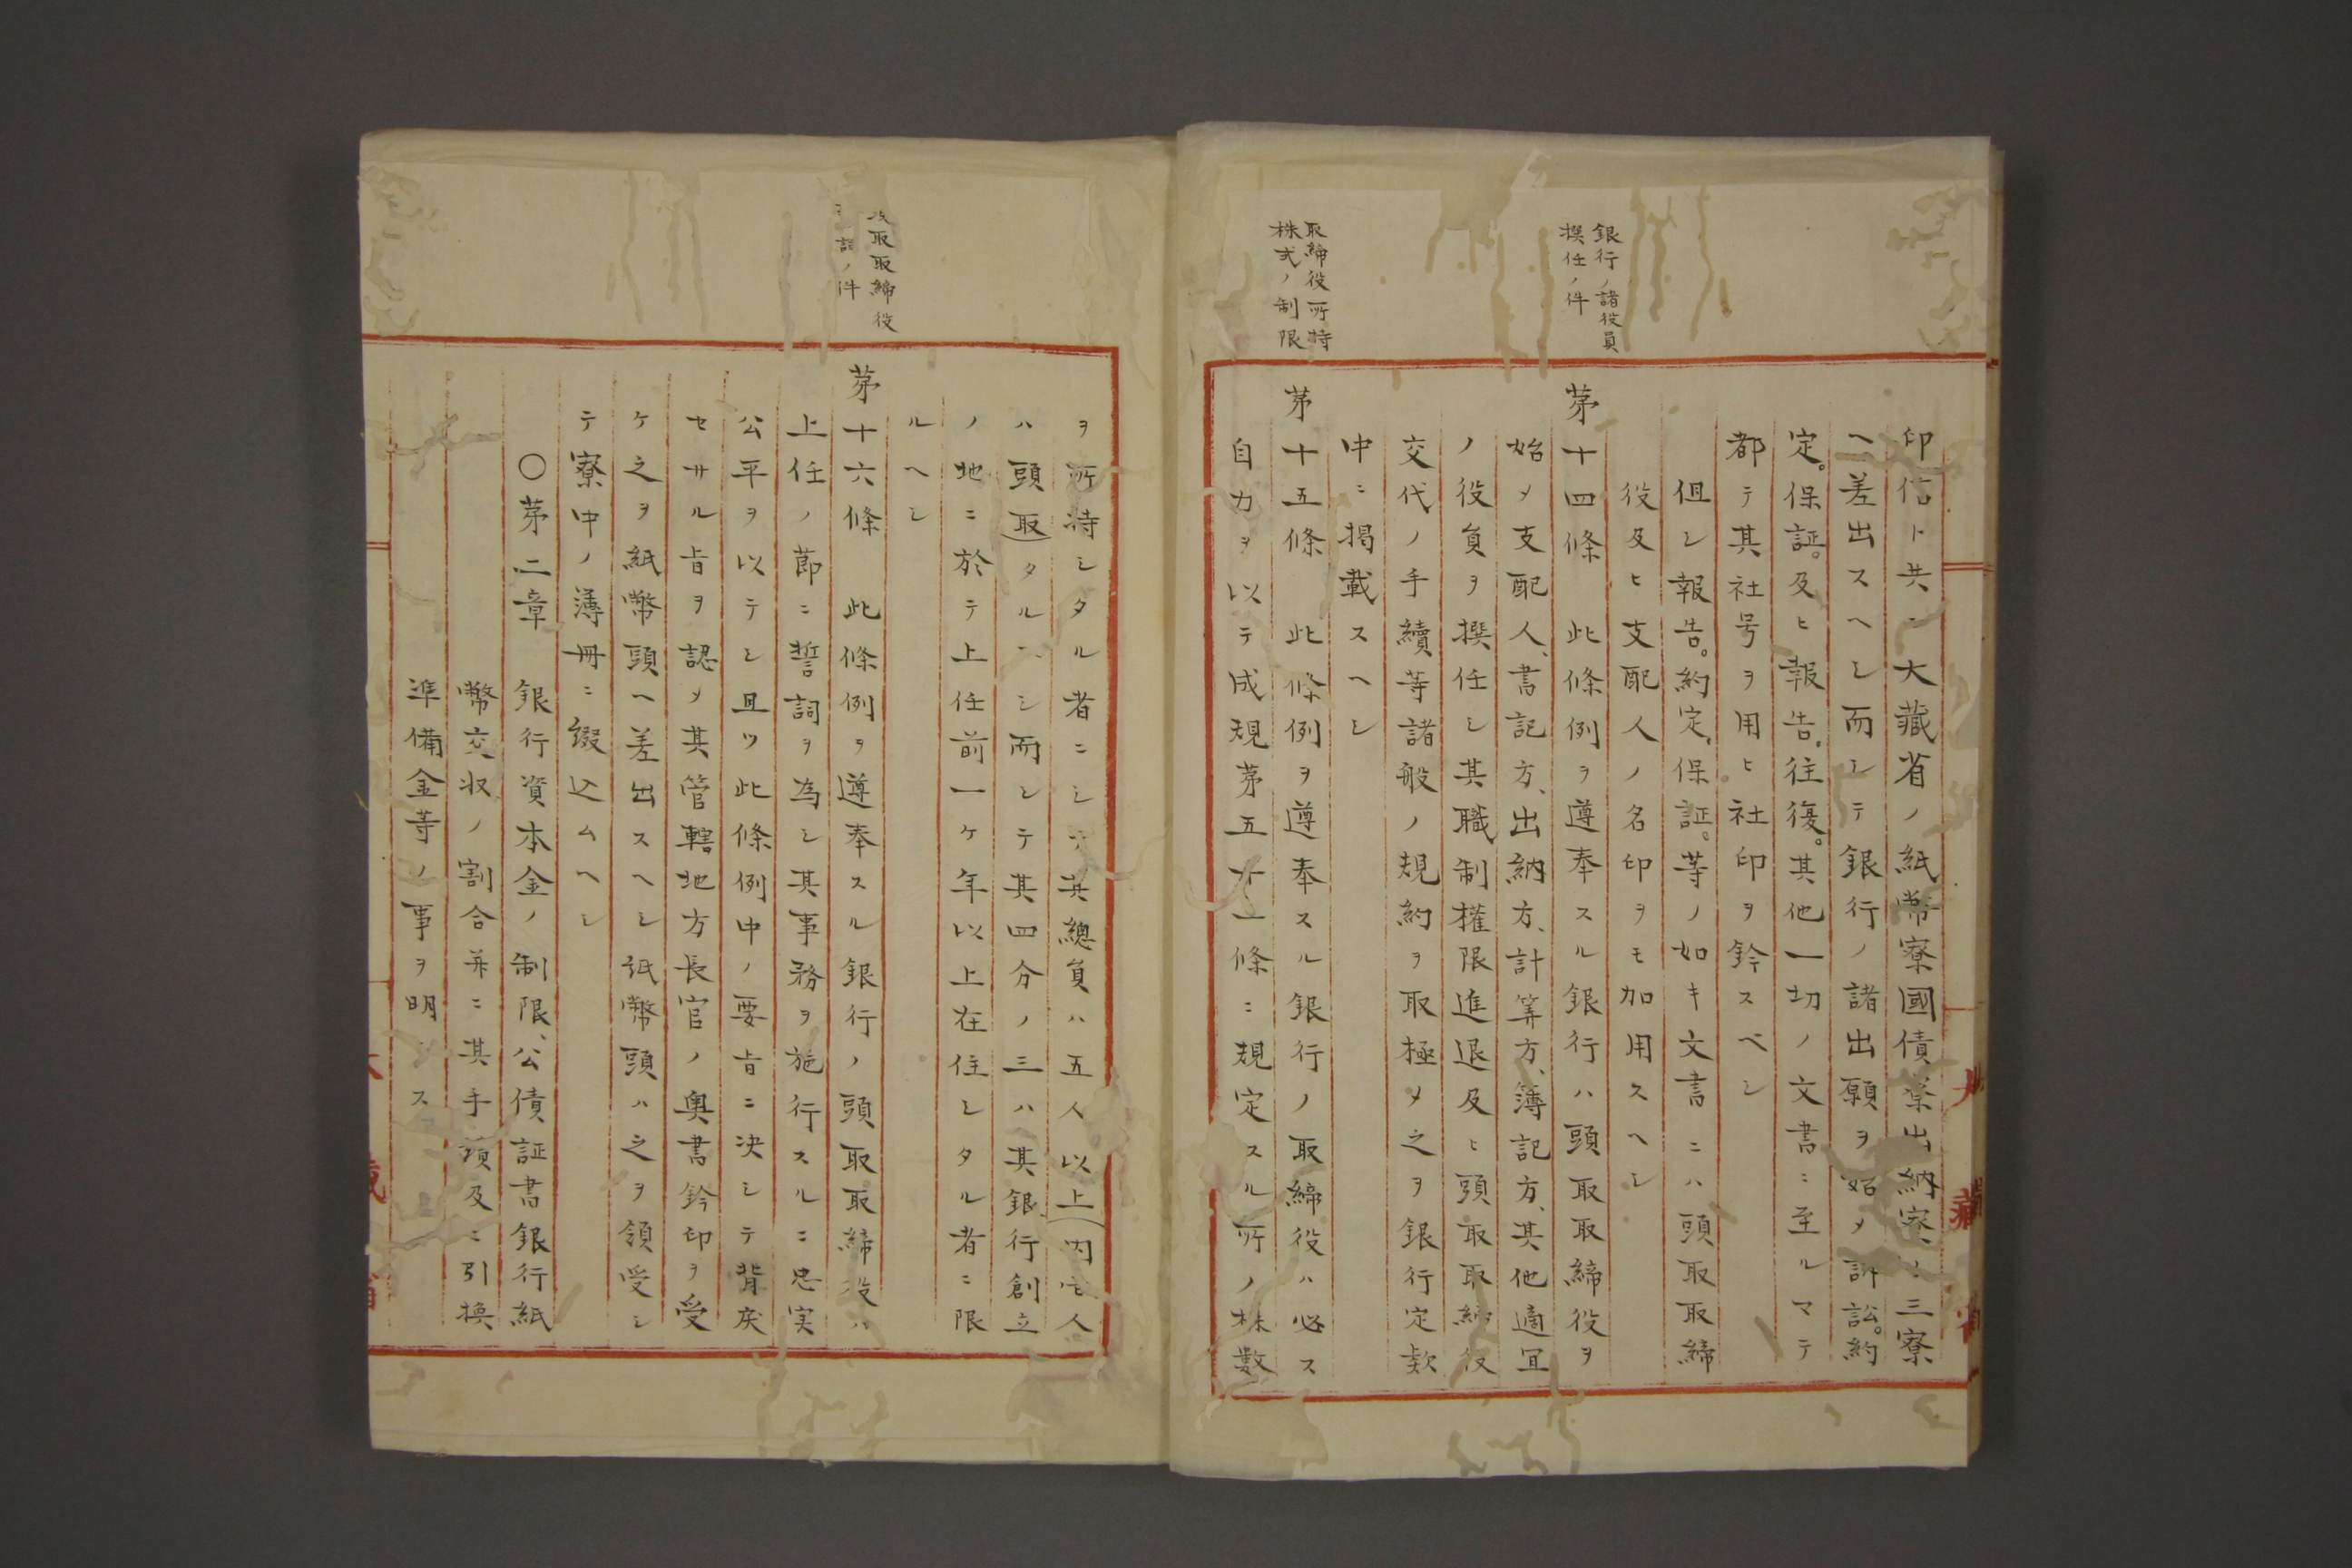 印信ト共ニ大藏省ノ紙幣寮國債寮出納寮ノ三寮
ヘ差出スヘシ而シテ銀行ノ諸出願ヲ始メ訴訟。約
定。保証。及ヒ報告。往復。其他一切ノ文書ニ至ルマテ
都テ其社号ヲ用ヒ社印ヲ鈐スベシ
但シ報告。約定。保証。等ノ如キ文書ニハ頭取取締
役及ヒ支配人ノ名印ヲモ加用スヘシ
銀行ノ諸役員
撰任ノ件
茅十四條 此條例ヲ遵奉スル銀行ハ頭取取締役ヲ
始メ支配人、書記方、出納方、計算方、簿記方、其他適宜
ノ役員ヲ撰任シ其職制權限進退及ヒ頭取取締役
交代ノ手續等諸般ノ規約ヲ取極メ之ヲ銀行定款
中ニ掲載スヘシ
取締役所持
株式ノ制限
茅十五條 此條例ヲ遵奉スル銀行ノ取締役ハ必ス
自カヲ以テ成規茅五十一條ニ規定スル所ノ株數
ヲ所持シタル者ニシテ其總員ハ五人以上(内壱人
ハ頭取)タルヘシ而シテ其四分ノ三ハ其銀行創立
ノ地ニ於テ上任前一ケ年以上在住シタル者ニ限
ルヘシ
取取締役
詞ノ件
茅十六條 此條例ヲ遵奉スル銀行ノ頭取取締役ハ
上任ノ節ニ誓詞ヲ為シ其事務ヲ施行スルニ忠実
公平ヲ以テシ且ツ此條例中ノ要旨ニ决シテ背戻
セサル旨ヲ認メ其管轄地方長官ノ奥書鈐印ヲ受
ケ之ヲ紙幣頭ヘ差出スヘシ紙幣頭ハ之ヲ領受シ
テ寮中ノ薄冊ニ綴込ムヘシ
○茅二章 銀行資本金ノ制限、公債証書銀行紙
幣交収ノ割合并ニ其手續及ニ引換
準備金等ノ事ヲ明ニス
大藏省